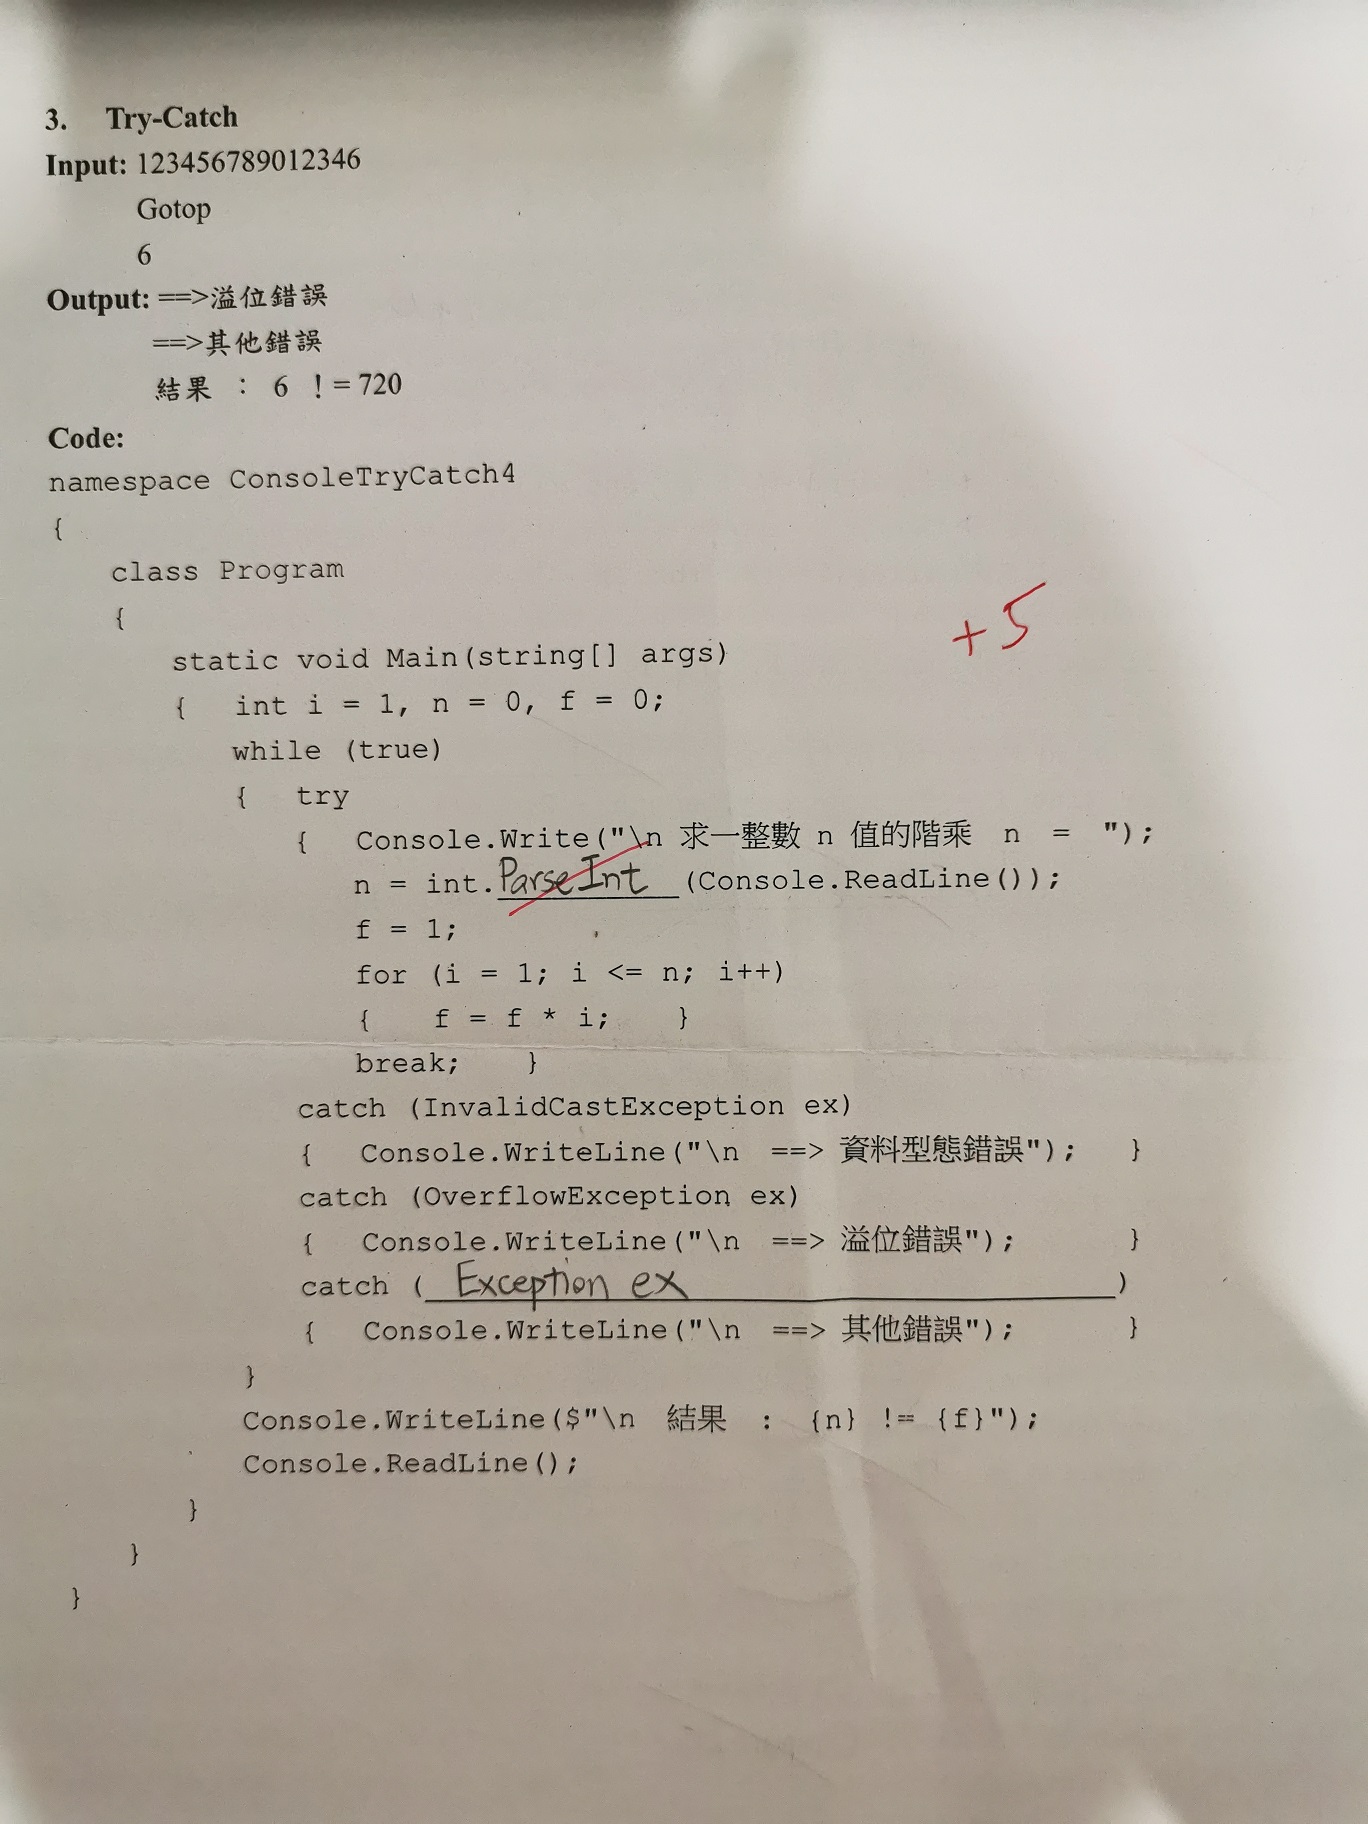 3. Try-Catch
Input: 123456789012346
Gotop
6
Output: ==>溢位錯誤
==>其他錯誤
結果 : 6 ! = 720
Code:
namespace ConsoleTryCatch4
{
class Program
{
static void Main(string[] args)
{ int i = 1, n = 0, f = 0;
while (true)
{ try
{ Console.Write("\n 求一整數 n 值的階乘 n = ");
n = int.ParseInt (Console.ReadLine());
f = 1;
for (i = 1; i <= n; i++)
{ f = f * i; }
break; }
catch (InvalidCastException ex)
{ Console.WriteLine("\n ==> 資料型態錯誤"); }
catch (OverflowException ex)
{ Console.WriteLine("\n ==> 溢位錯誤"); }
catch ( Exception ex )
{ Console.WriteLine("\n ==> 其他錯誤"); }
}
Console.WriteLine($"\n 結果 : {n} != {f}");
Console.ReadLine();
}
}
}
+5